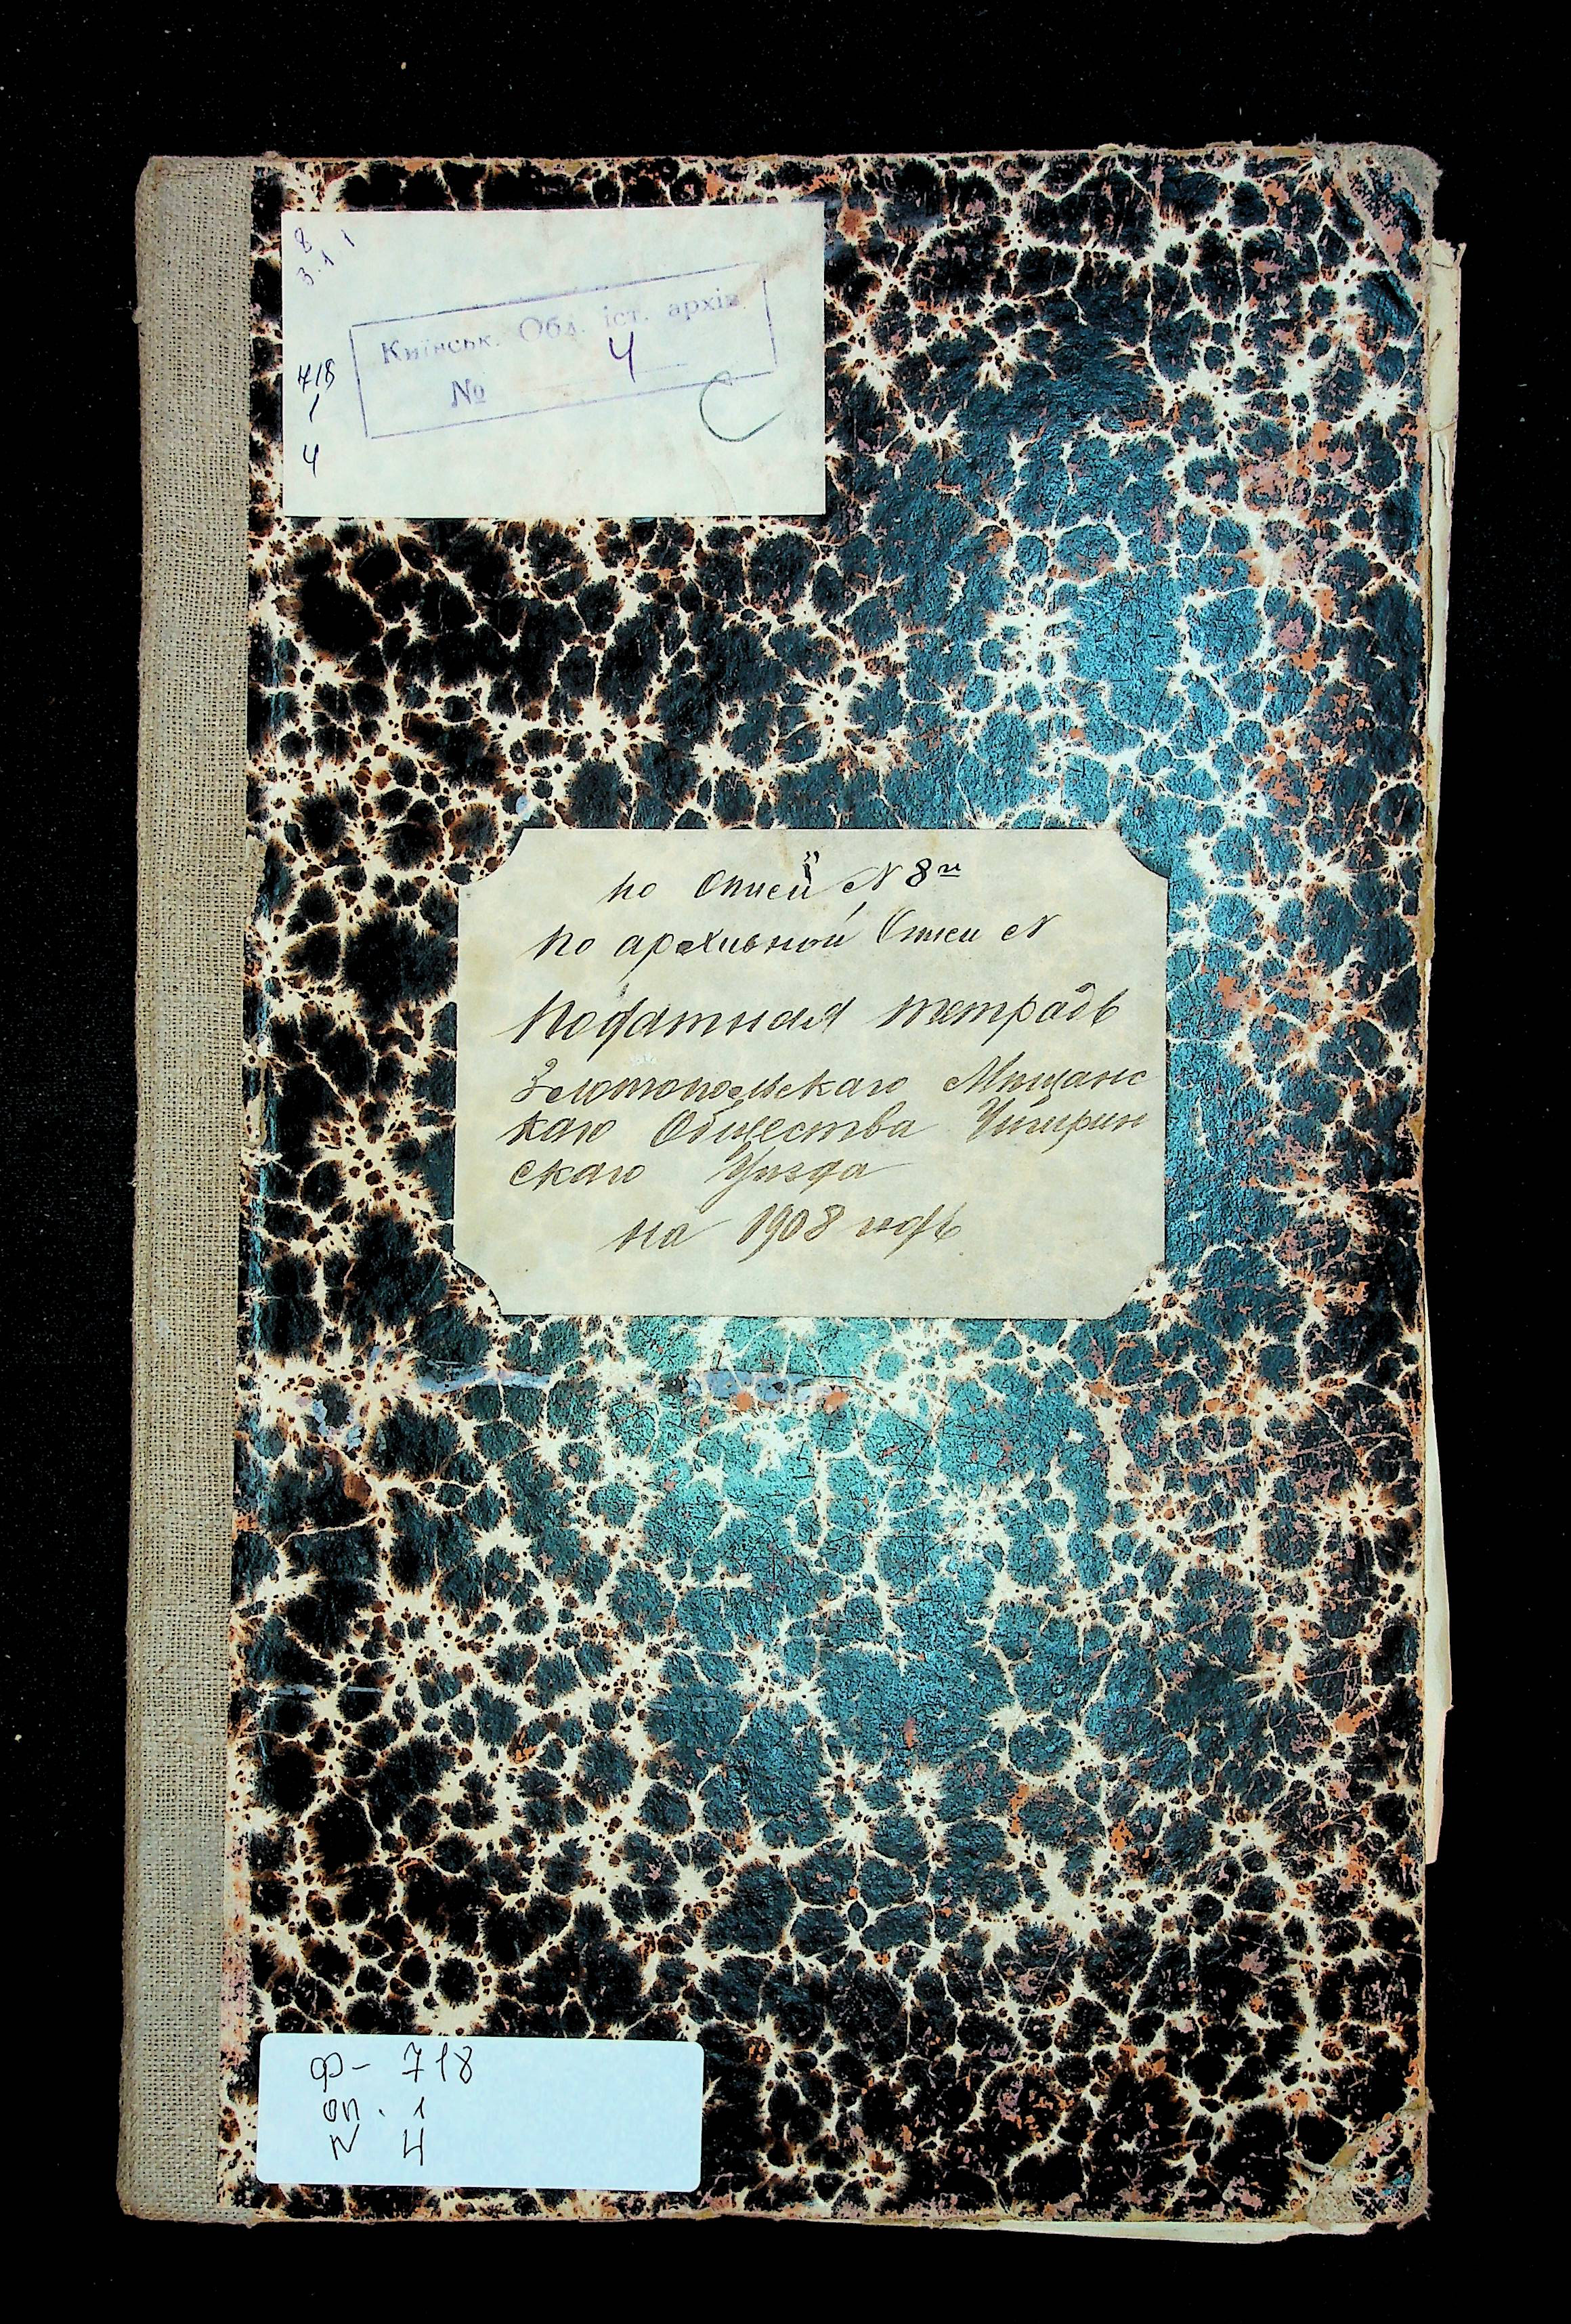 8
3.1 1
Київськ. Обл. іст. архів
№ 4
718
1
4
С
по Описи № 8й
по архивной Описи №
Податная тетрадь
Златопольскаго Мѣщанс
каго Общества Чигирин
скаго Уѣзда
на 1908 годъ
ф- 718
оп. 1
N 4